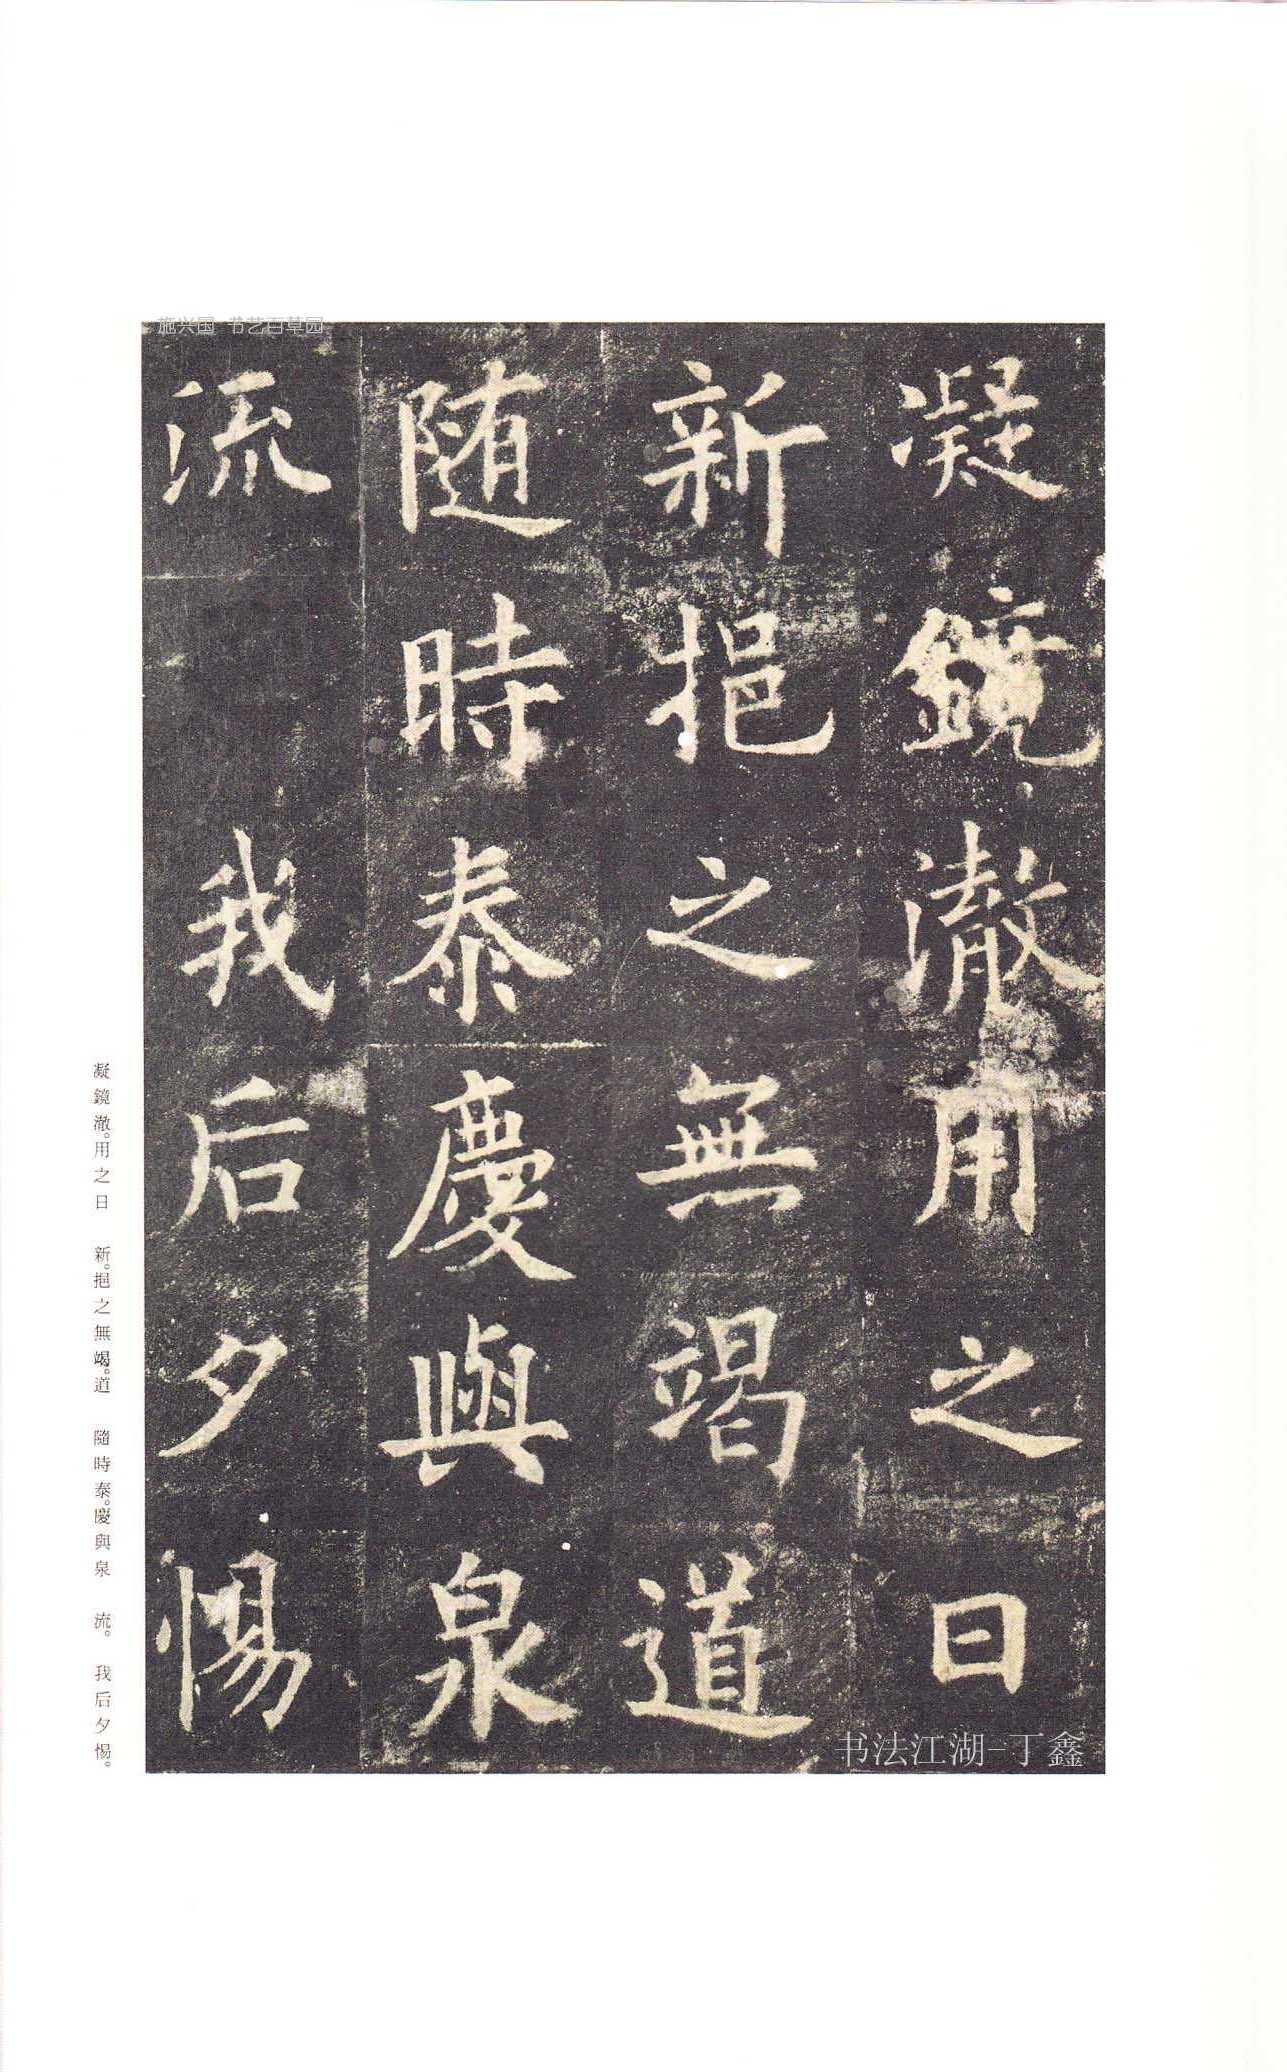 施兴国 书艺百草园
凝鏡澈用之日
新挹之無竭道
随時泰慶與泉
流 我后夕惕
凝鏡澈。用之日 新。挹之無竭。道 隨時泰。慶與泉 流。我后夕惕。
书法江湖-丁鑫